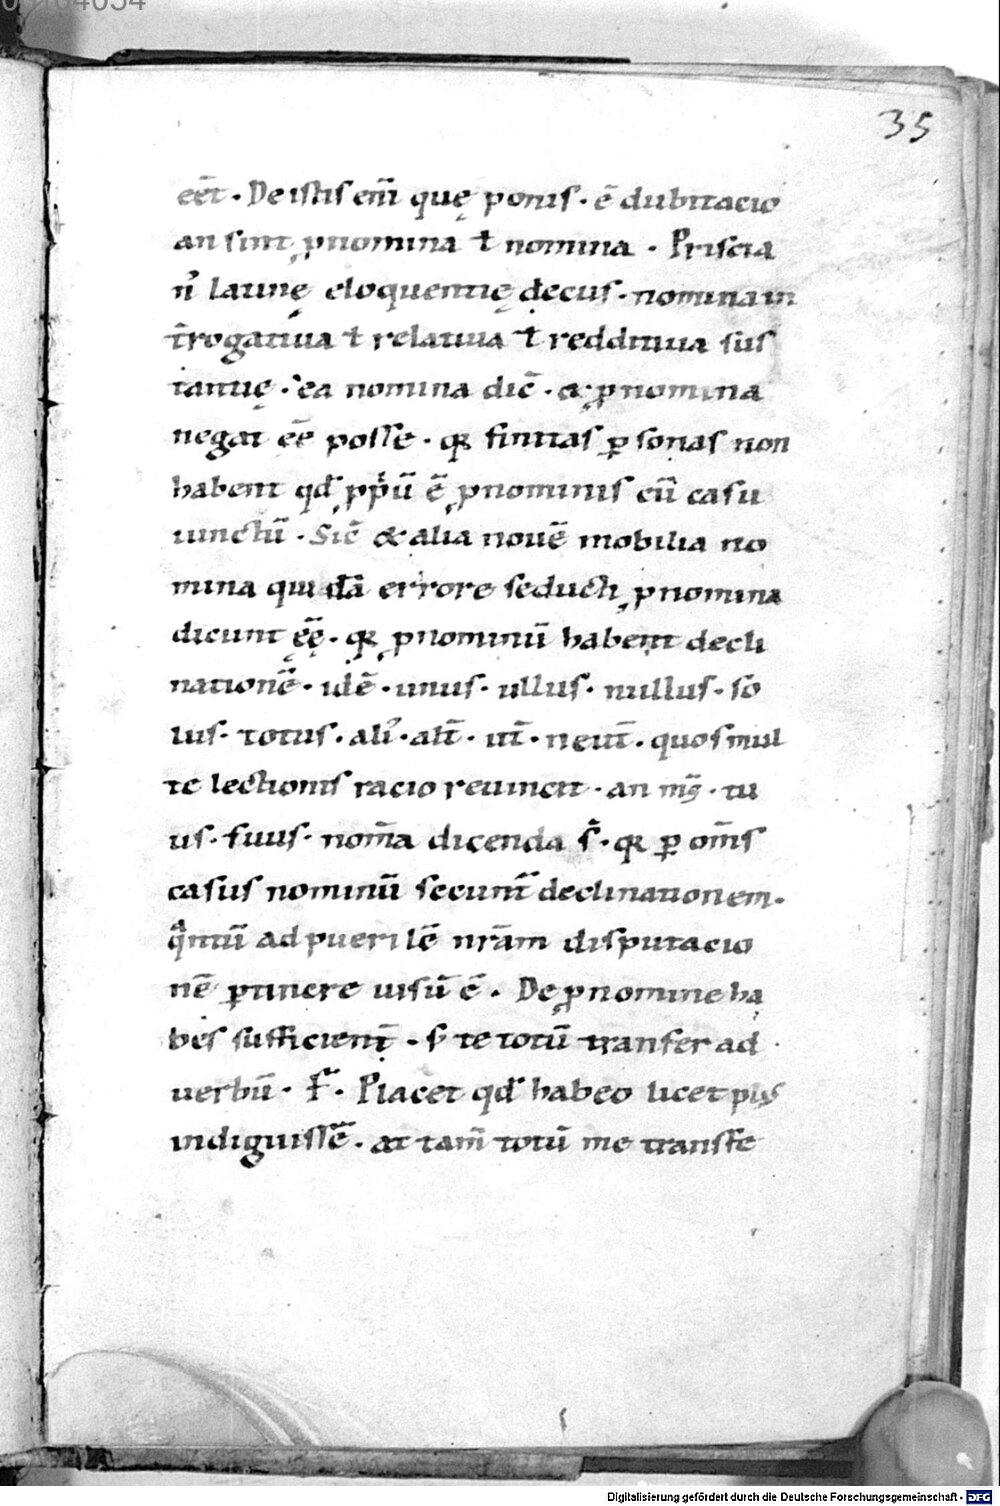 35
eēt · De istis eni̅ quę ponis · ē dubitacio
an sint pnomina ł nomina · Priscia
n᾽ latinę eloquentię decus · nomina in
t̄rogatiua ł relatiua ł redditiua sus
tantię · ea nomina dic̄ · & pnomina
negat eē̄ posse · qꝛ finitas ꝑsonas non
habent qd̄ ꝓpͥū ē pnominis cū casu
iunctū · Sic̄ & alia nouē mobilia no
mina quidā errore seducti pnomina
dicunt ęę̄ · qꝛ pnominū habent decli
nationē · idē · unus · ullus · nullus · so
lus · totus · ali᾽ · alt̄ · ut̄ · neut̄ · quos mul
te lectionis racio reuincit · an m̄s · tu
us · suus · nom̄a dicenda s̄ · qꝛ ꝑ om̄s
casus nominū secunt̄ declinationem ·
qͣntū ad puerilē nr̄am disputacio
nē ꝑtinere uisū ē · De pnomine ha
bes sufficient̄ · s᾽ te totū transfer ad
uerbū · F̄r · Placet qd̄ habeo licet pl᾽
indiguissē · at tam̄ totū me transfe
Digitalisierung gefördert durch die Deutsche Forschungsgemeinschaft - DFG